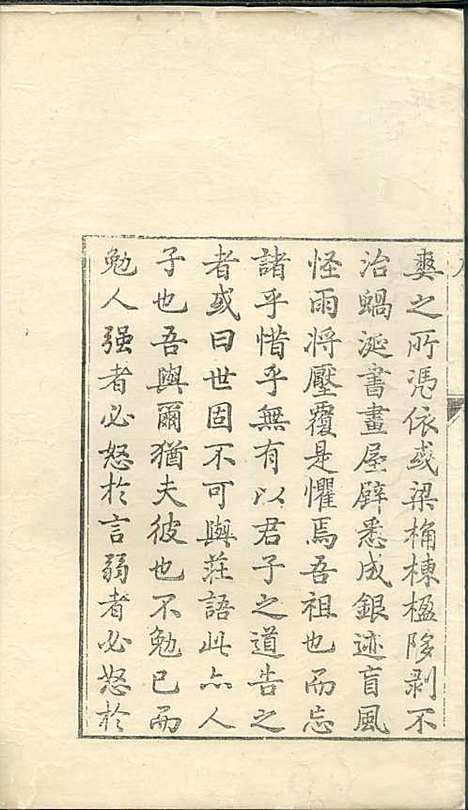 爽之所憑依或梁桷棟楹陊剥不
治蝸涎書畫屋壁悉成銀迹盲風
怪雨將壓覆是懼焉吾祖也而忘
諸乎惜乎無有以君子之道告之
者或曰世固不可與莊語此亦人
子也吾與爾猶夫彼也不勉已而
勉人强者必怒於言弱者必怒於